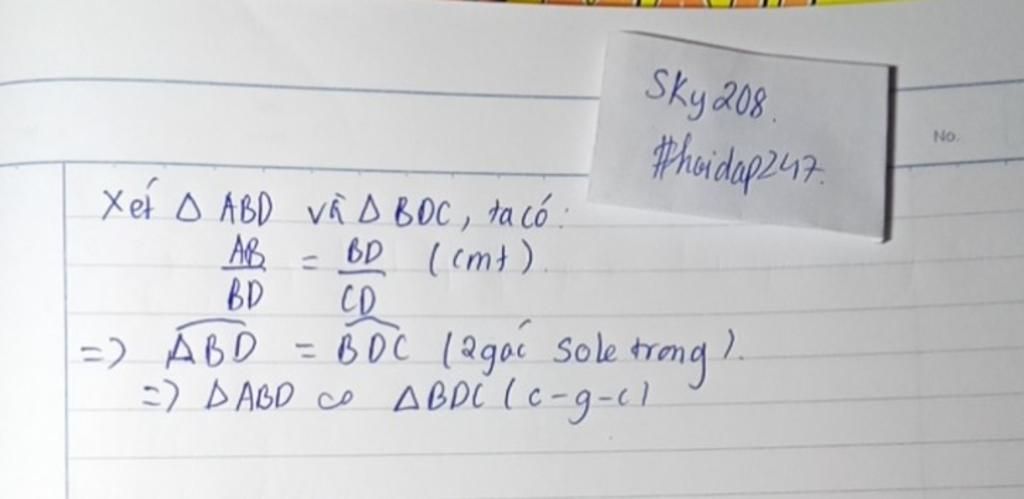 SKy208.
#hoidap247.
No.
Xét Δ ABD và Δ BDC, ta có:
AB/BD = BD/CD (cmt).
=> ABD = BDC (2 góc sole trong).
=> ΔABD ∽ ΔBDC (c-g-c)